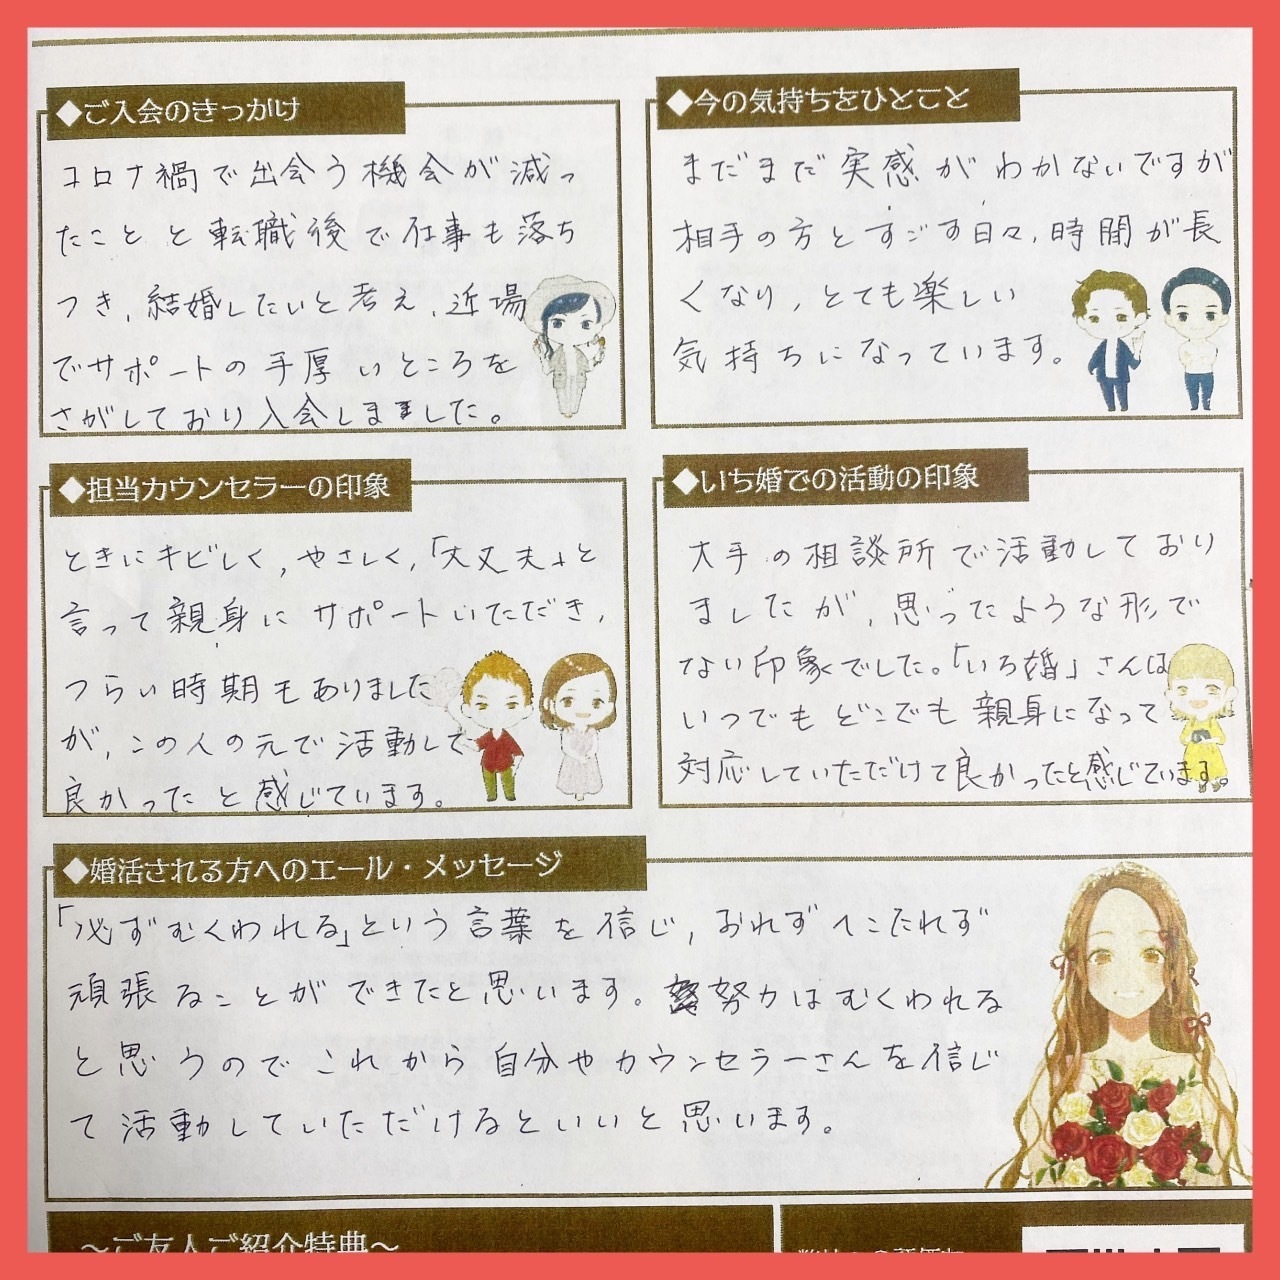 ◆ご入会のきっかけ
コロナ禍で出会う機会が減っ
たことと転職後で仕事も落ち
つき、結婚したいと考え、近場
でサポートの手厚いところを
さがしており入会しました。
◆今の気持ちをひとこと
まだまだ実感がわかないですが
相手の方とすごす日々、時間が長
くなり、とても楽しい
気持ちになっています。
◆担当カウンセラーの印象
ときにキビしく、やさしく、「大丈夫」と
言って親身にサポートいただき、
つらい時期もありました
が、この人の元で活動して
良かったと感じています。
◆いち婚での活動の印象
大手の相談所で活動しており
ましたが、思ったような形で
ない印象でした。「いち婚」さんは
いつでもどこでも親身になって
対応していただけて良かったと感じています。
◆婚活される方へのエール・メッセージ
「必ずむくわれる」という言葉を信じ、おれずへこたれず
頑張ることができたと思います。努力はむくわれる
と思うのでこれから自分やカウンセラーさんを信じ
て活動していただけるといいと思います。
～ご友人ご紹介特典～